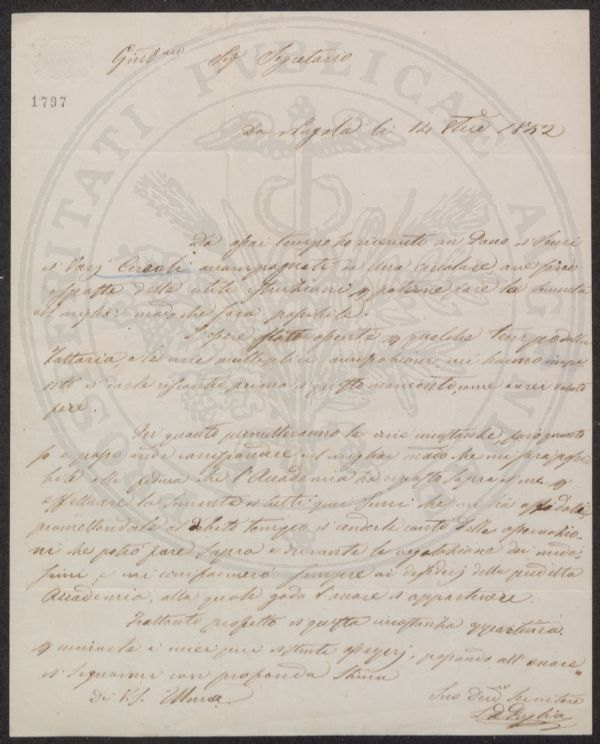 Giust.mo Sig Segretario
1797
Da Nugola li 14 1852
Da assai tempo ho ricevuto un Pacco di Semi
di Varj Cereali accompagnati da Una circolare ove sono
esposte delle utili istruzioni potere fare la sementa
nel miglior modo che sarà possibile.
L'essere stato assente qualche tempo dalla
Fattoria, e le mie molteplici occupazioni mi hanno impe
dito di darle riscontro prima di questo momento, come avrei voluto
fare.
Per quanto permetteranno le mie farò quanto
posso onde corrispondere nel miglior modo che mi sarà possi
bile alla fiducia che l'Accademia ha riposto sopra di me
effettuare la Sementa di tutti quei Semi che mi ha affidati,
promettendole a debito tempo di renderle conto delle osservazio
ni che potrò fare sopra e durante la vegetazione dei mede
simi, e mi conformerò sempre ai desiderj della predetta
Accademia, alla quale godo l'onore di appartenere.
Frattanto profitto di questa
i miei più distinti ossequj, e passando all'onore
di segnarmi con profonda Stima
Di V.S. Ill.ma
Suo Dev.mo Servitore